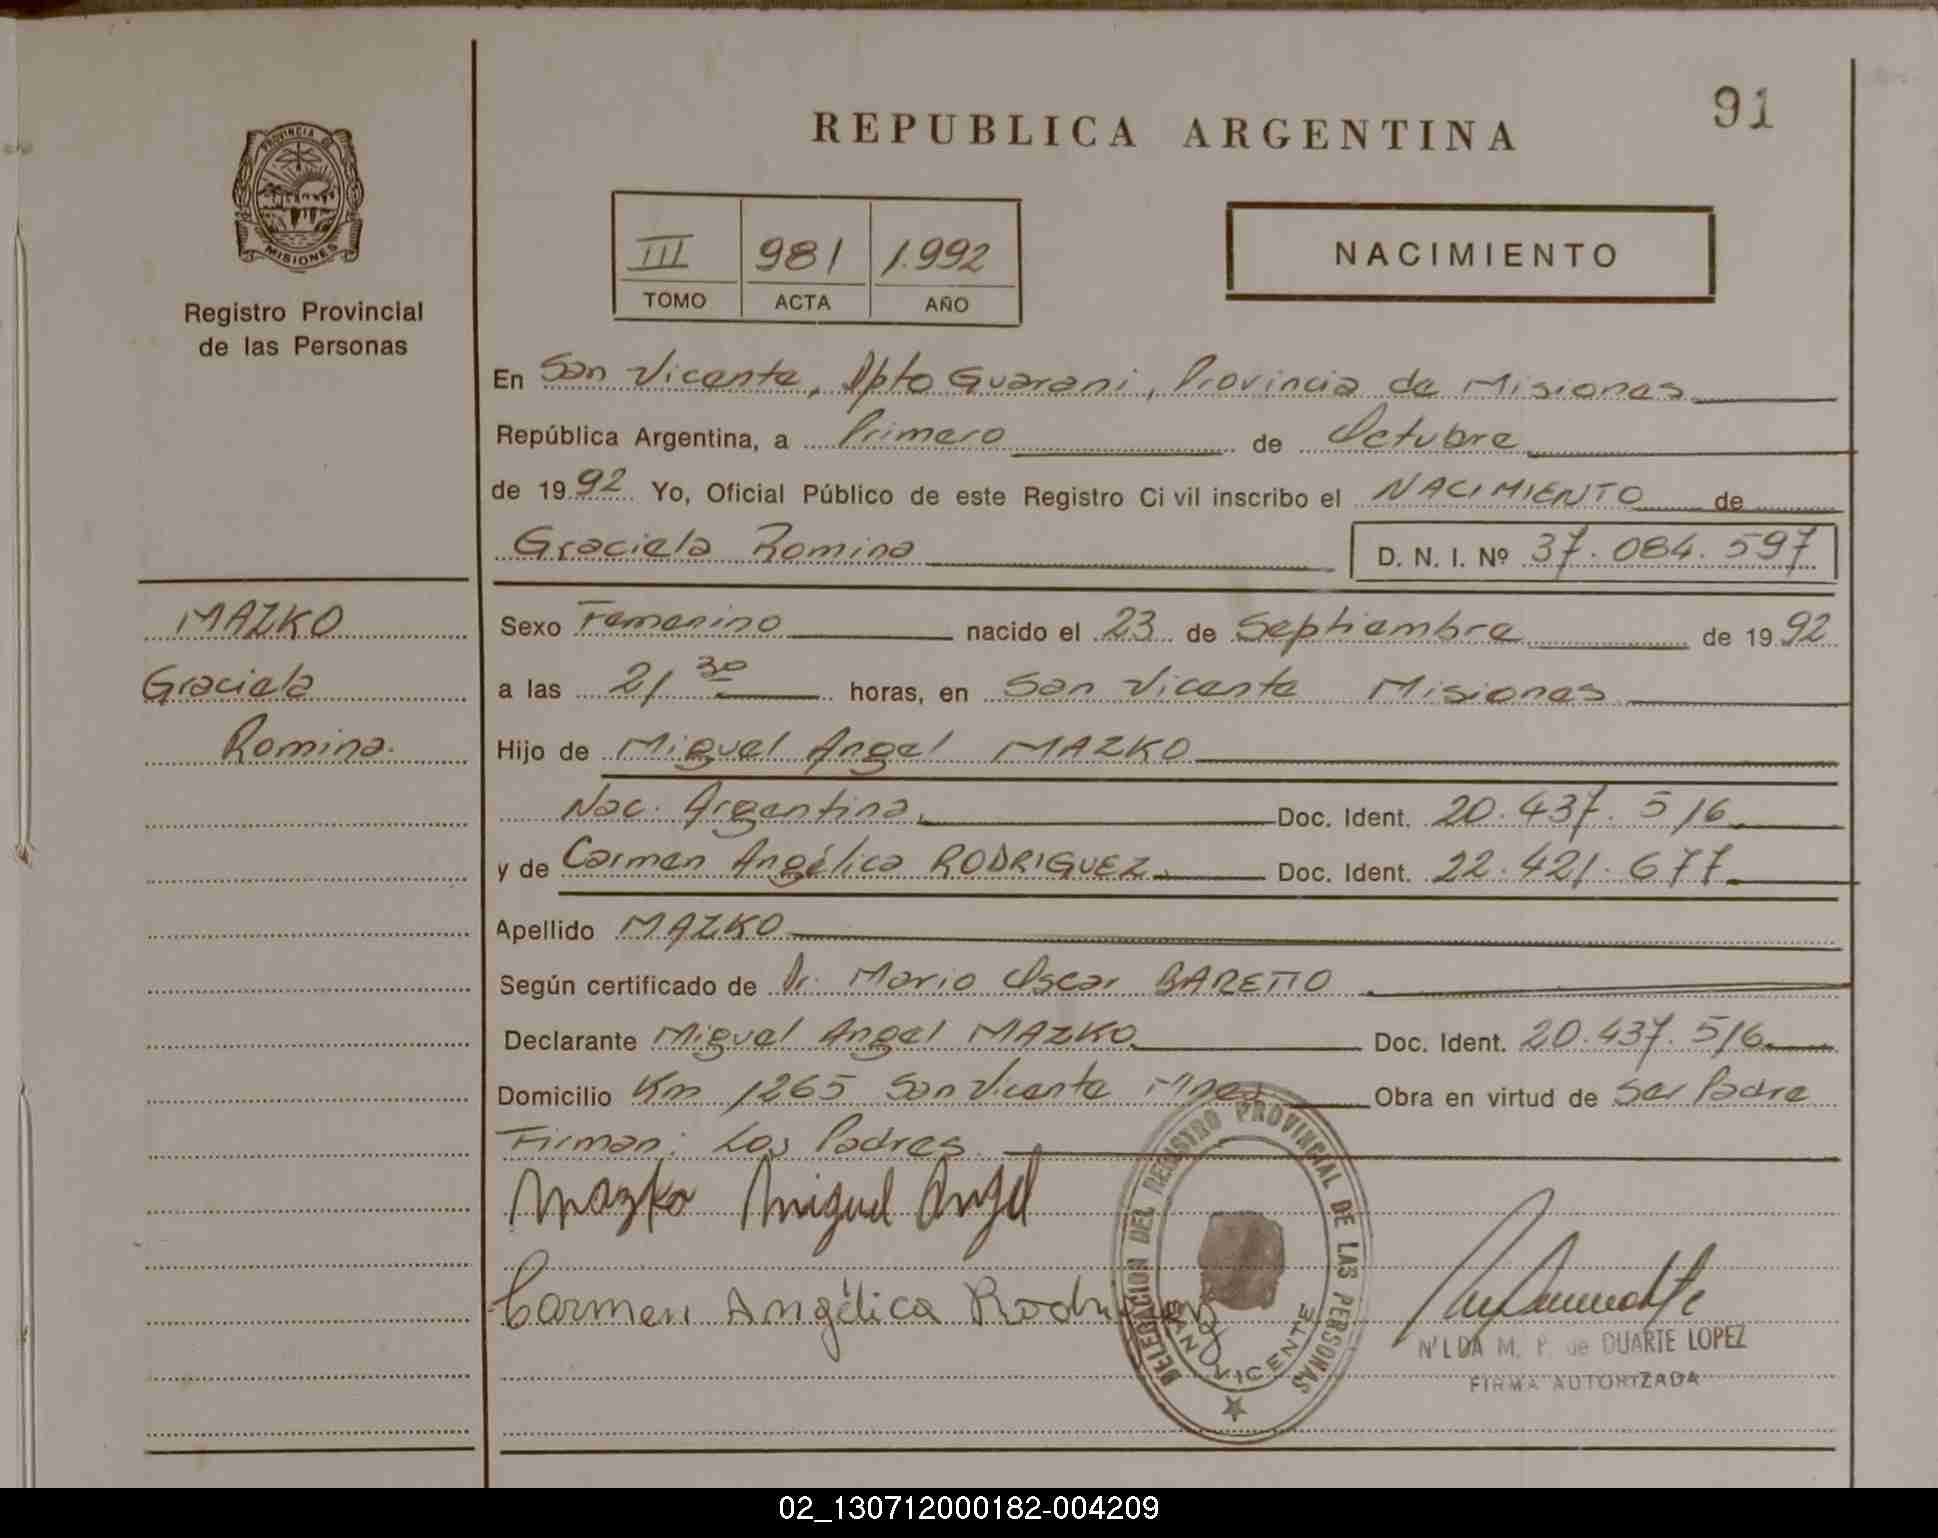 91
REPUBLICA ARGENTINA
PROVINCIA DE MISIONES
Registro Provincial
de las Personas
III 981 1.992
TOMO ACTA AÑO
NACIMIENTO
En San Vicente, Dpto Guarani, Provincia de Misiones
República Argentina, a Primero de Octubre
de 1992 Yo, Oficial Público de este Registro Civil inscribo el NACIMIENTO de
Graciela Romina D. N. I. Nº 37.084.597
MAZKO
Graciela
Romina.
Sexo Femenino nacido el 23 de Septiembre de 1992
a las 21 30 horas, en San Vicente Misiones
Hijo de Miguel Angel MAZKO
Nac. Argentina. Doc. Ident. 20.437.516
y de Carmen Angélica RODRIGUEZ. Doc. Ident. 22.421.677
Apellido MAZKO
Según certificado de Dr. Mario Oscar BARETTO
Declarante Miguel Angel MAZKO Doc. Ident. 20.437.516
Domicilio Km 1265 San Vicente Mnes Obra en virtud de Ser Padre
Firman: Los Padres
Mazko Miguel Angel
Carmen Angélica Rodriguez
DELEGACION DEL REGISTRO PROVINCIAL DE LAS PERSONAS
SAN VICENTE
NILDA M. P. de DUARTE LOPEZ
FIRMA AUTORIZADA
02_130712000182-004209